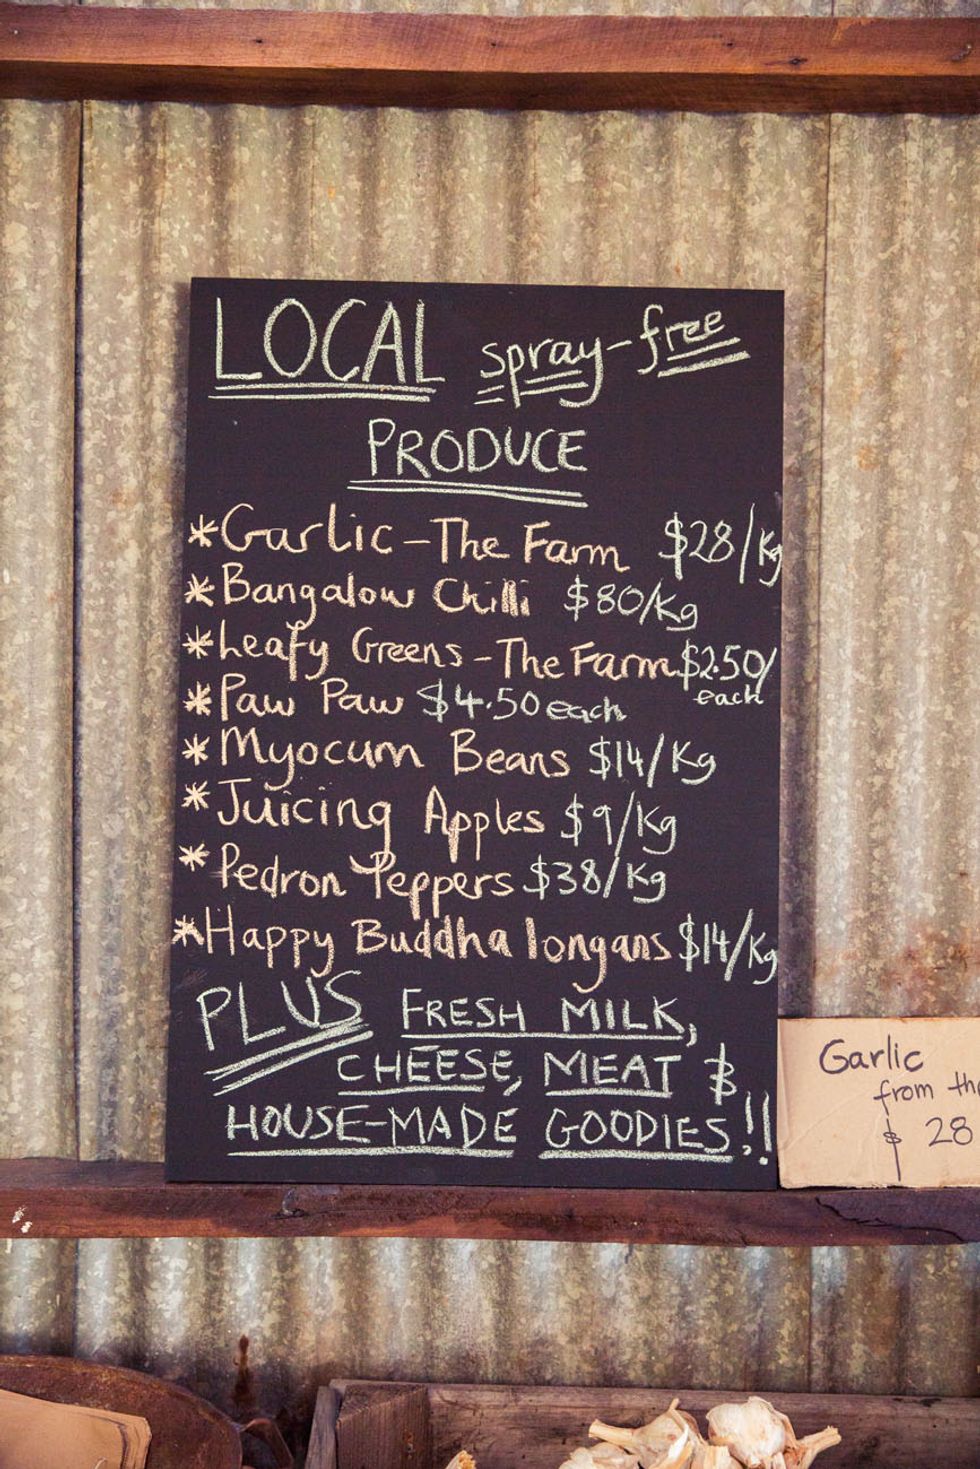 LOCAL spray-free
PRODUCE
*Garlic - The Farm $28/Kg
*Bangalow Chilli $80/Kg
*Leafy Greens - The Farm $2.50/
each
*Paw Paw $4.50 each
*Myocum Beans $14/Kg
*Juicing Apples $9/Kg
*Pedron Peppers $38/Kg
*Happy Buddha longans $14/Kg
PLUS FRESH MILK,
CHEESE, MEAT &
HOUSE-MADE GOODIES!!
Garlic
from the
$ 28